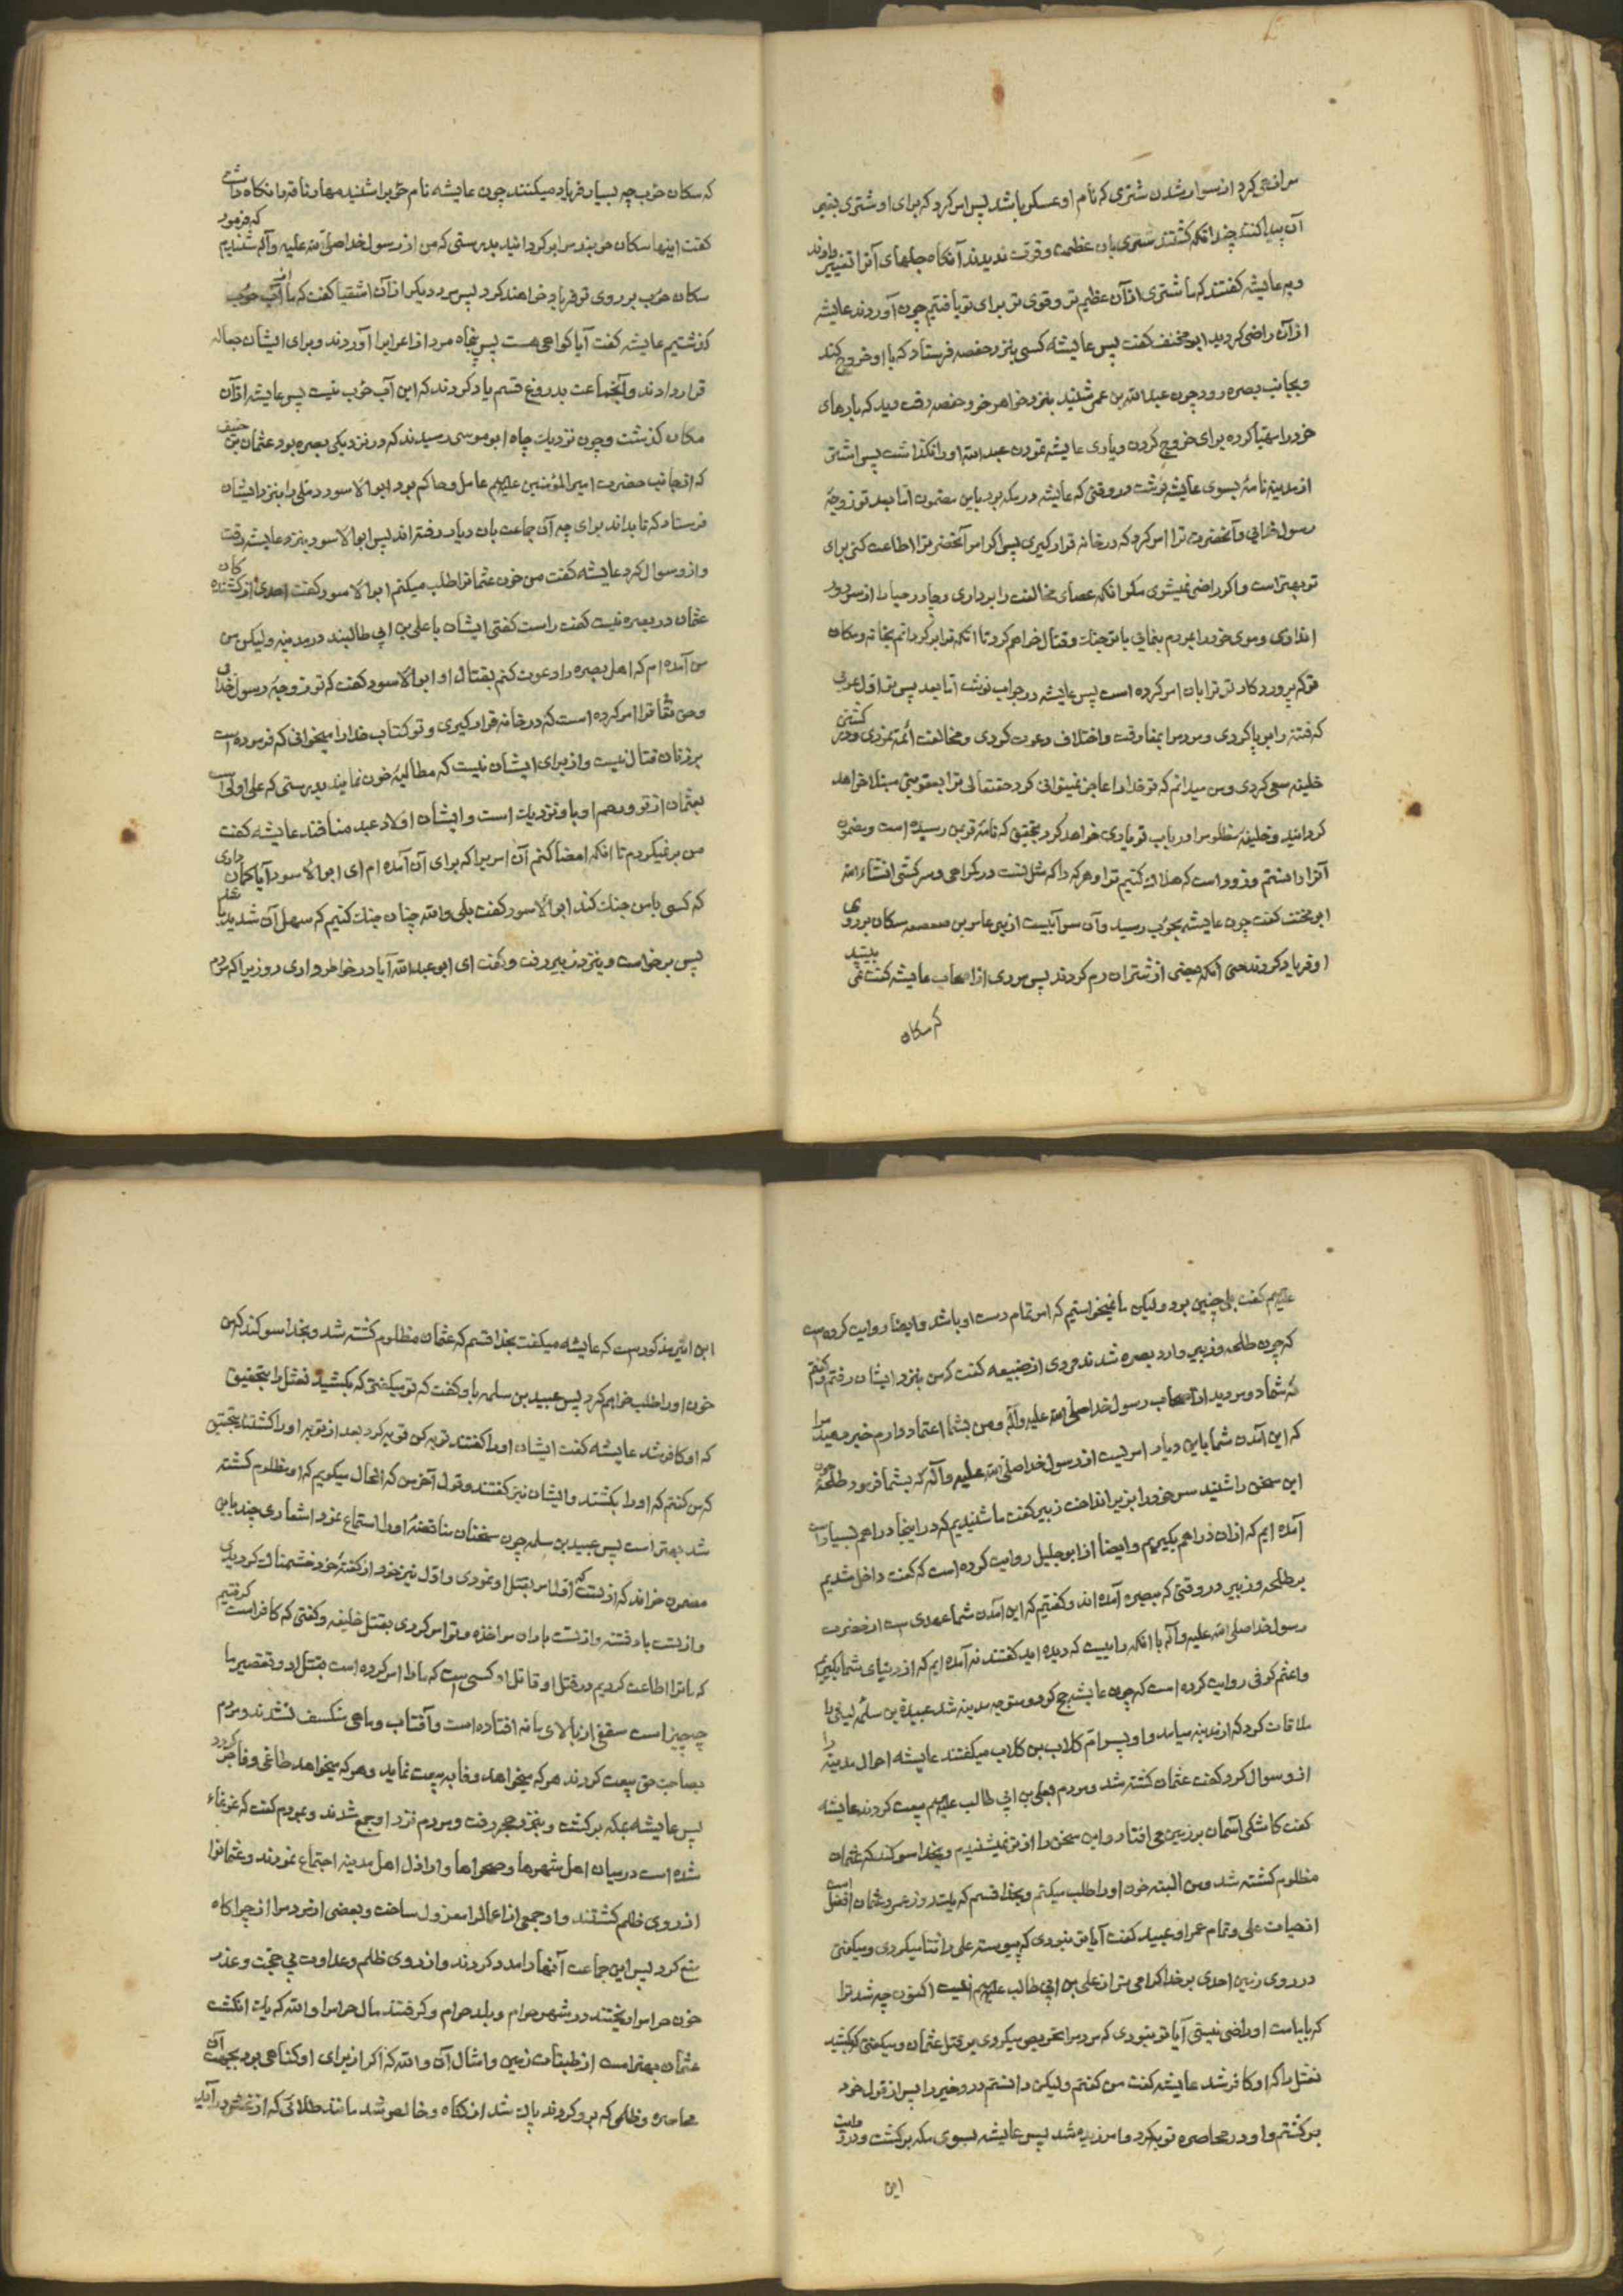 مرا نهی کرد از سوار شدن شتری که نام او عسکر باشد پس امر کرد که برای او شتری بغیر
آن پیدا کنند چندانکه گشتند شتری بان عظمت و قوت ندیدند آنکاه جلهای آنرا تغییر دادند
و به عایشه گفتند که ما شتری از آن عظیم تر و قوی تر برای تو یافتیم چون آوردند عایشه
از آن راضی گردید ابو مخنف گفت پس عایشه کسی بنزد حفصه فرستاد که با او خروج کند
و بجانب بصره رود چون عبدالله بن عمر شنید بنزد خواهر خود حفصه رفت دید که بارهای
خود را مهیا کرده برای خروج کردن و یاری عایشه نمودن عبدالله او را نگذاشت پس اشتر
از مدینه نامهٔ بسوی عایشه نوشت در وقتی که عایشه در مکه بود باین مضمون اما بعد تو زوجهٔ
رسول خدایی و آنحضرت ترا امر کرد که در خانه قرار کیری پس اکر امر آنحضرترا اطاعت کنی برای
تو بهتر است و اکر راضی نمیشوی مگر انکه عصای مخالفت را برداری و چادر حیا را از سر دور
اندازی و موی خود را بمردم بنمایی با تو جنک و قتال خواهم کرد تا انکه ترا برگردانم بخانه و مکان
تو که پروردکار تو ترا بان امر کرده است پس عایشه در جواب نوشت اما بعد پس تو اول عربی
که فتنه را برپا کردی و مردم را بمفارقت و اختلاف دعوت کردی و مخالفت ائمه نمودی و در کشتن
خلیفه سعی کردی و من میدانم که تو خدا را عاجز نمیتوانی کرد حقتعالی ترا بعقوبتی مبتلا خواهد
کردانید و خلیفهٔ مظلوم را در باب تو یاری خواهد کرد بتحقیق که نامهٔ تو بمن رسیده است و مضمون
آنرا دانستم و زود است که هلاک کنیم ترا و هر که را که مثل تست در کمراهی و سرکشی انشاءالله
ابو مخنف گفت چون عایشه بحوب رسید و آن سرآبیست از بنی عامر بن صعصعه سکان بر روی
او فریاد کردند حتی انکه بعضی از شتران رم کردند پس مردی از اصحاب عایشه گفت نمی بینید
که سکان
که سکان حوب چه بسیار فریاد میکنند چون عایشه نام حوب را شنید مهار ناقه را نکاه داشت
کفت اینها سکان حوبند مرا برکردانید بدرستی که من از رسول خدا صلی الله علیه و آله شنیدم که فرمود
سکان حوب بر روی تو فریاد خواهند کرد پس مرد دیکر از آن اشقیا کفت که ما از آب حوب
کذشتیم عایشه کفت آیا کواهی هست پس پنجاه مرد از اعراب را آوردند و برای ایشان جعاله
قرار دادند و آنجماعت بدروغ قسم یاد کردند که این آب حوب نیست پس عایشه از آن
مکان کذشت و چون نزدیک چاه ابو موسی رسیدند که در نزدیکی بصره بود عثمان بن حنیف
که از جانب حضرت امیرالمؤمنین علیهم عامل و حاکم بود ابو الاسود دئلی را بنزد ایشان
فرستاد که تا بداند برای چه آن جماعت بان دیار رفته اند پس ابو الاسود بنزد عایشه رفت
و از و سوال کرد عایشه کفت من خون عثمانرا طلب میکنم ابوالاسود کفت احدی از کشندکان
عثمان در بصره نیست کفت راست کفتی ایشان با علی بن ابی طالبند در مدینه ولیکن من
من آمده ام که اهل بصره را دعوت کنم بقتال او ابوالاسود کفت که تو زوجهٔ رسول خدائی
و حق تعالی ترا امر کرده است که در خانه قرار کیری و تو کتاب خدا را میخوانی که فرموده است
بر زنان قتال نیست و از برای ایشان نیست که مطالبهٔ خون نمایند بدرستی که علی اولی است
بعثمان از تو و رحم او باو نزدیک است و ایشان اولاد عبد منافند عایشه کفت
من برنمیکردم تا انکه امضا کنم آن امر را که برای آن آمده ام ای ابو الاسود آیا کمان داری
که کسی با من جنک کند ابو الاسود کفت بلی والله چنان جنک کنیم که سهل آن شدید باشد
پس برخواست و بنزد زبیر رفت و کفت ای ابو عبدالله آیا در خاطر داری روزیرا که مردم
علیهم کفت بلی چنین بود ولیکن ما نمیخواستیم که امر تمام دست او باشد و ایضا روایت کرده است
که چون طلحه و زبیر وارد بصره شدند مردی از ضبیعه کفت که من بنزد ایشان رفتم و کفتم
که شما دو مردید از اصحاب رسول خدا صلی الله علیه و آله و من بشما اعتماد دارم خبر دهید مرا
که این آمدن شما باین دیار امریست از رسول خدا صلی الله علیه و آله که بشما فرمود طلحه چون
این سخن را شنید سر خود را بزیر انداخت زبیر کفت ما شنیدیم که در اینجا دراهم بسیار است
آمده ایم که از ان دراهم بکیریم و ایضا از ابو جلیل روایت کرده است که کفت داخل شدیم
بر طلحه و زبیر در وقتی که ببصره آمده اند و کفتیم که این آمدن شما عهدی است از حضرت
رسول خدا صلی الله علیه و آله یا انکه راییست که دیده اید کفتند نه آمده ایم که از دنیای شما بکیریم
و اعثم کوفی روایت کرده است که چون عایشه حج کرد و متوجه مدینه شد عبید بن سلمهٔ لیثی را
ملاقات کرد که از مدینه میامد و او پسر ام کلاب بن کلاب میکفتند عایشه احوال مدینه را
از و سوال کرد کفت عثمان کشته شد و مردم بعلی بن ابی طالب علیهم بیعت کردند عایشه
کفت کاشکی آسمان بر زمین می افتاد و این سخن را از تو نمیشنیدم و بخدا سوکند که عثمان
مظلوم کشته شد و من البته خون او را طلب میکنم و بخدا قسم که یک روز عمر عثمان افضل است
از حیات علی و تمام عمر او عبید کفت آیا تو نبودی که پیوسته علی را ثنا میکردی و میکفتی
در روی زمین احدی بر خدا کرامی تر از علی بن ابی طالب علیهم نیست اکنون چه شد ترا
که بامامت او راضی نیستی آیا تو نبودی که مردم را تحریص میکردی بر قتل عثمان و میکفتی که بکشید
نعثل را که او کافر شد عایشه کفت من کفتم ولیکن دانستم در و خیر را پس از قول خود
برکشتم و او در محاصره توبه کرد و امرزیده شد پس عایشه بسوی مکه برکشت و در روایت
این
ابن اثیر مذکور است که عایشه میکفت بخدا قسم که عثمان مظلوم کشته شد و بخدا سوکند که من
خون او را طلب خواهم کرد پس عبید بن سلمه باو کفت که تو میکفتی که بکشید نعثل را بتحقیق
که او کافر شد عایشه کفت ایشان او را کفتند توبه کن توبه کرد بعد از توبه او را کشتند بتحقیق
که من کفتم که او را بکشند و ایشان نیز کفتند و قول آخر من که الحال میکویم که او مظلوم کشته
شد بهتر است پس عبید بن سلمه چون سخنان متناقضهٔ او را استماع نمود اشعاری چند باین
مضمون خواند که از تست که اول امر بقتل او نمودی و اول نیز خود از کفتهٔ خود خشمناک کردیدی
و از تست باد فتنه و از تست باران مواخذه و تو امر کردی بقتل خلیفه و کفتی که کافر است کرفتیم
که ما ترا اطاعت کردیم در قتل او قاتل او کسی است که ما را امر کرده است بقتل او و تقصیر ما
چه چیز است سقفی از بالای ما نه افتاده است و آفتاب و ماه منکسف نشدند و مردم
بصاحب حق بیعت کردند هر که میخواهد وفا به بیعت نماید و هر که میخواهد طاغی و فاجر کردد
پس عایشه بمکه برکشت و بنزد حجر رفت و مردم نزد او جمع شدند و بمردم کفت که غوغاء
شده است در میان اهل شهرها و صحراها و اراذل اهل مدینه اجتماع نمودند و عثمانرا
از روی ظلم کشتند و او جمعی از اعمال را معزول ساخت و بعضی از مردم را از چراکاه
منع کرد پس این جماعت آنها را مدد کردند و از روی ظلم و عداوت بی حجت و عذر
خون حرام را ریختند در شهر حرام و بلد حرام و کرفتند مال حرام را والله که یک انکشت
عثمان بهتر است از طبقات زمین و امثال آن والله که اکر از برای او کناهی بود بجهت آن
محاصره و ظلمی که برو کردند پاک شد از کناه و خالص شد مانند طلائی که از غش در آید